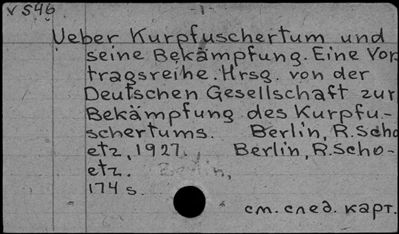 V 546 -1-
Ueber Kurpfuschertum und
seine Bekämpfung. Eine Vor
tragsreihe. Hrsg. von der
Deutschen Gesellschaft zur
Bekämpfung des Kurpfu-
schertums. Berlin, R. Scho
etz, 1927. Berlin, R. Scho-
etz. Berlin,
174 s.
см. след. карт.